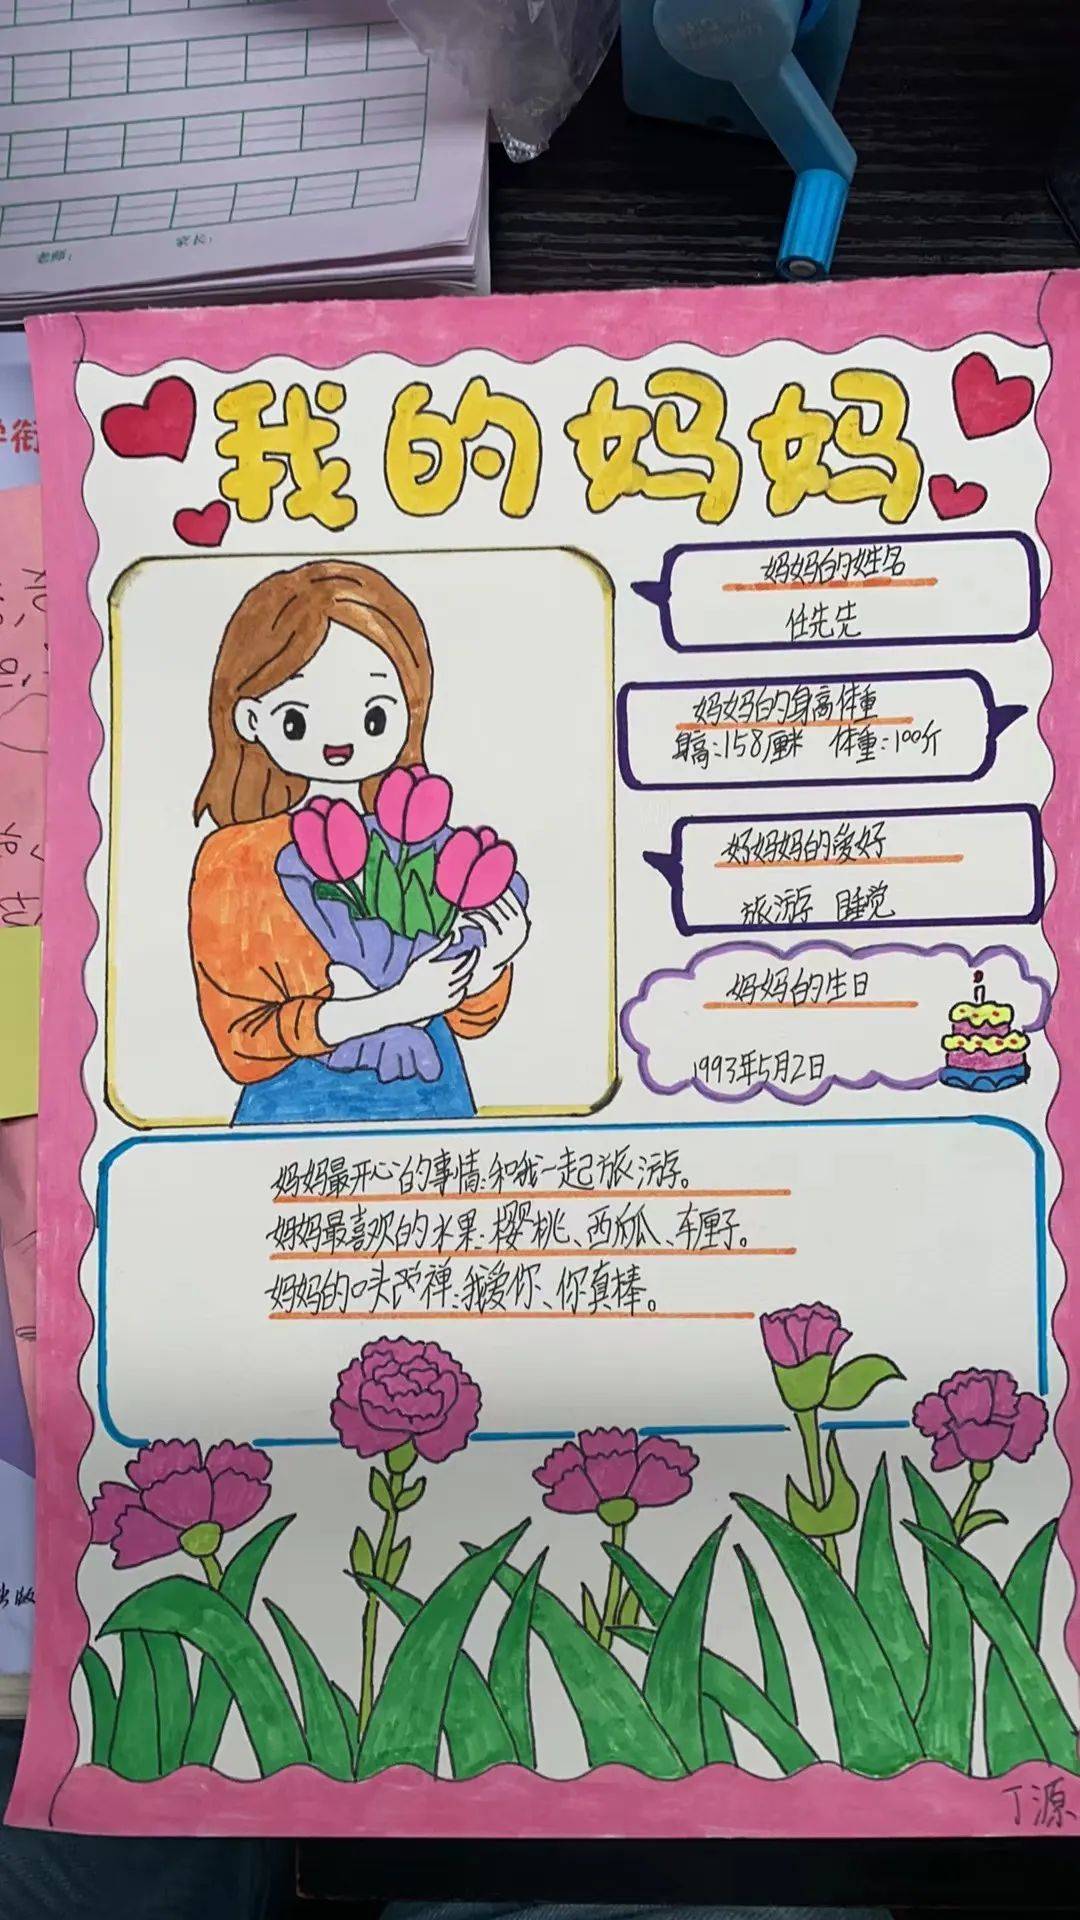 老师：
家长：
我的妈妈
妈妈的姓名
任先先
妈妈的身高体重
身高：158厘米 体重：100斤
妈妈的爱好
旅游 睡觉
妈妈的生日
1993年5月2日
妈妈最开心的事情：和我一起旅游。
妈妈最喜欢的水果：樱桃、西瓜、车厘子。
妈妈的口头禅：我爱你、你真棒。
出版
丁源